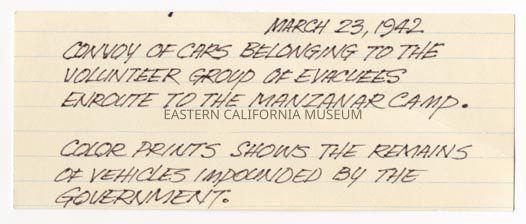 MARCH 23, 1942
CONVOY OF CARS BELONGING TO THE
VOLUNTEER GROUP OF EVACUEES
ENROUTE TO THE MANZANAR CAMP.
EASTERN CALIFORNIA MUSEUM
COLOR PRINTS SHOWS THE REMAINS
OF VEHICLES IMPOUNDED BY THE
GOVERNMENT.